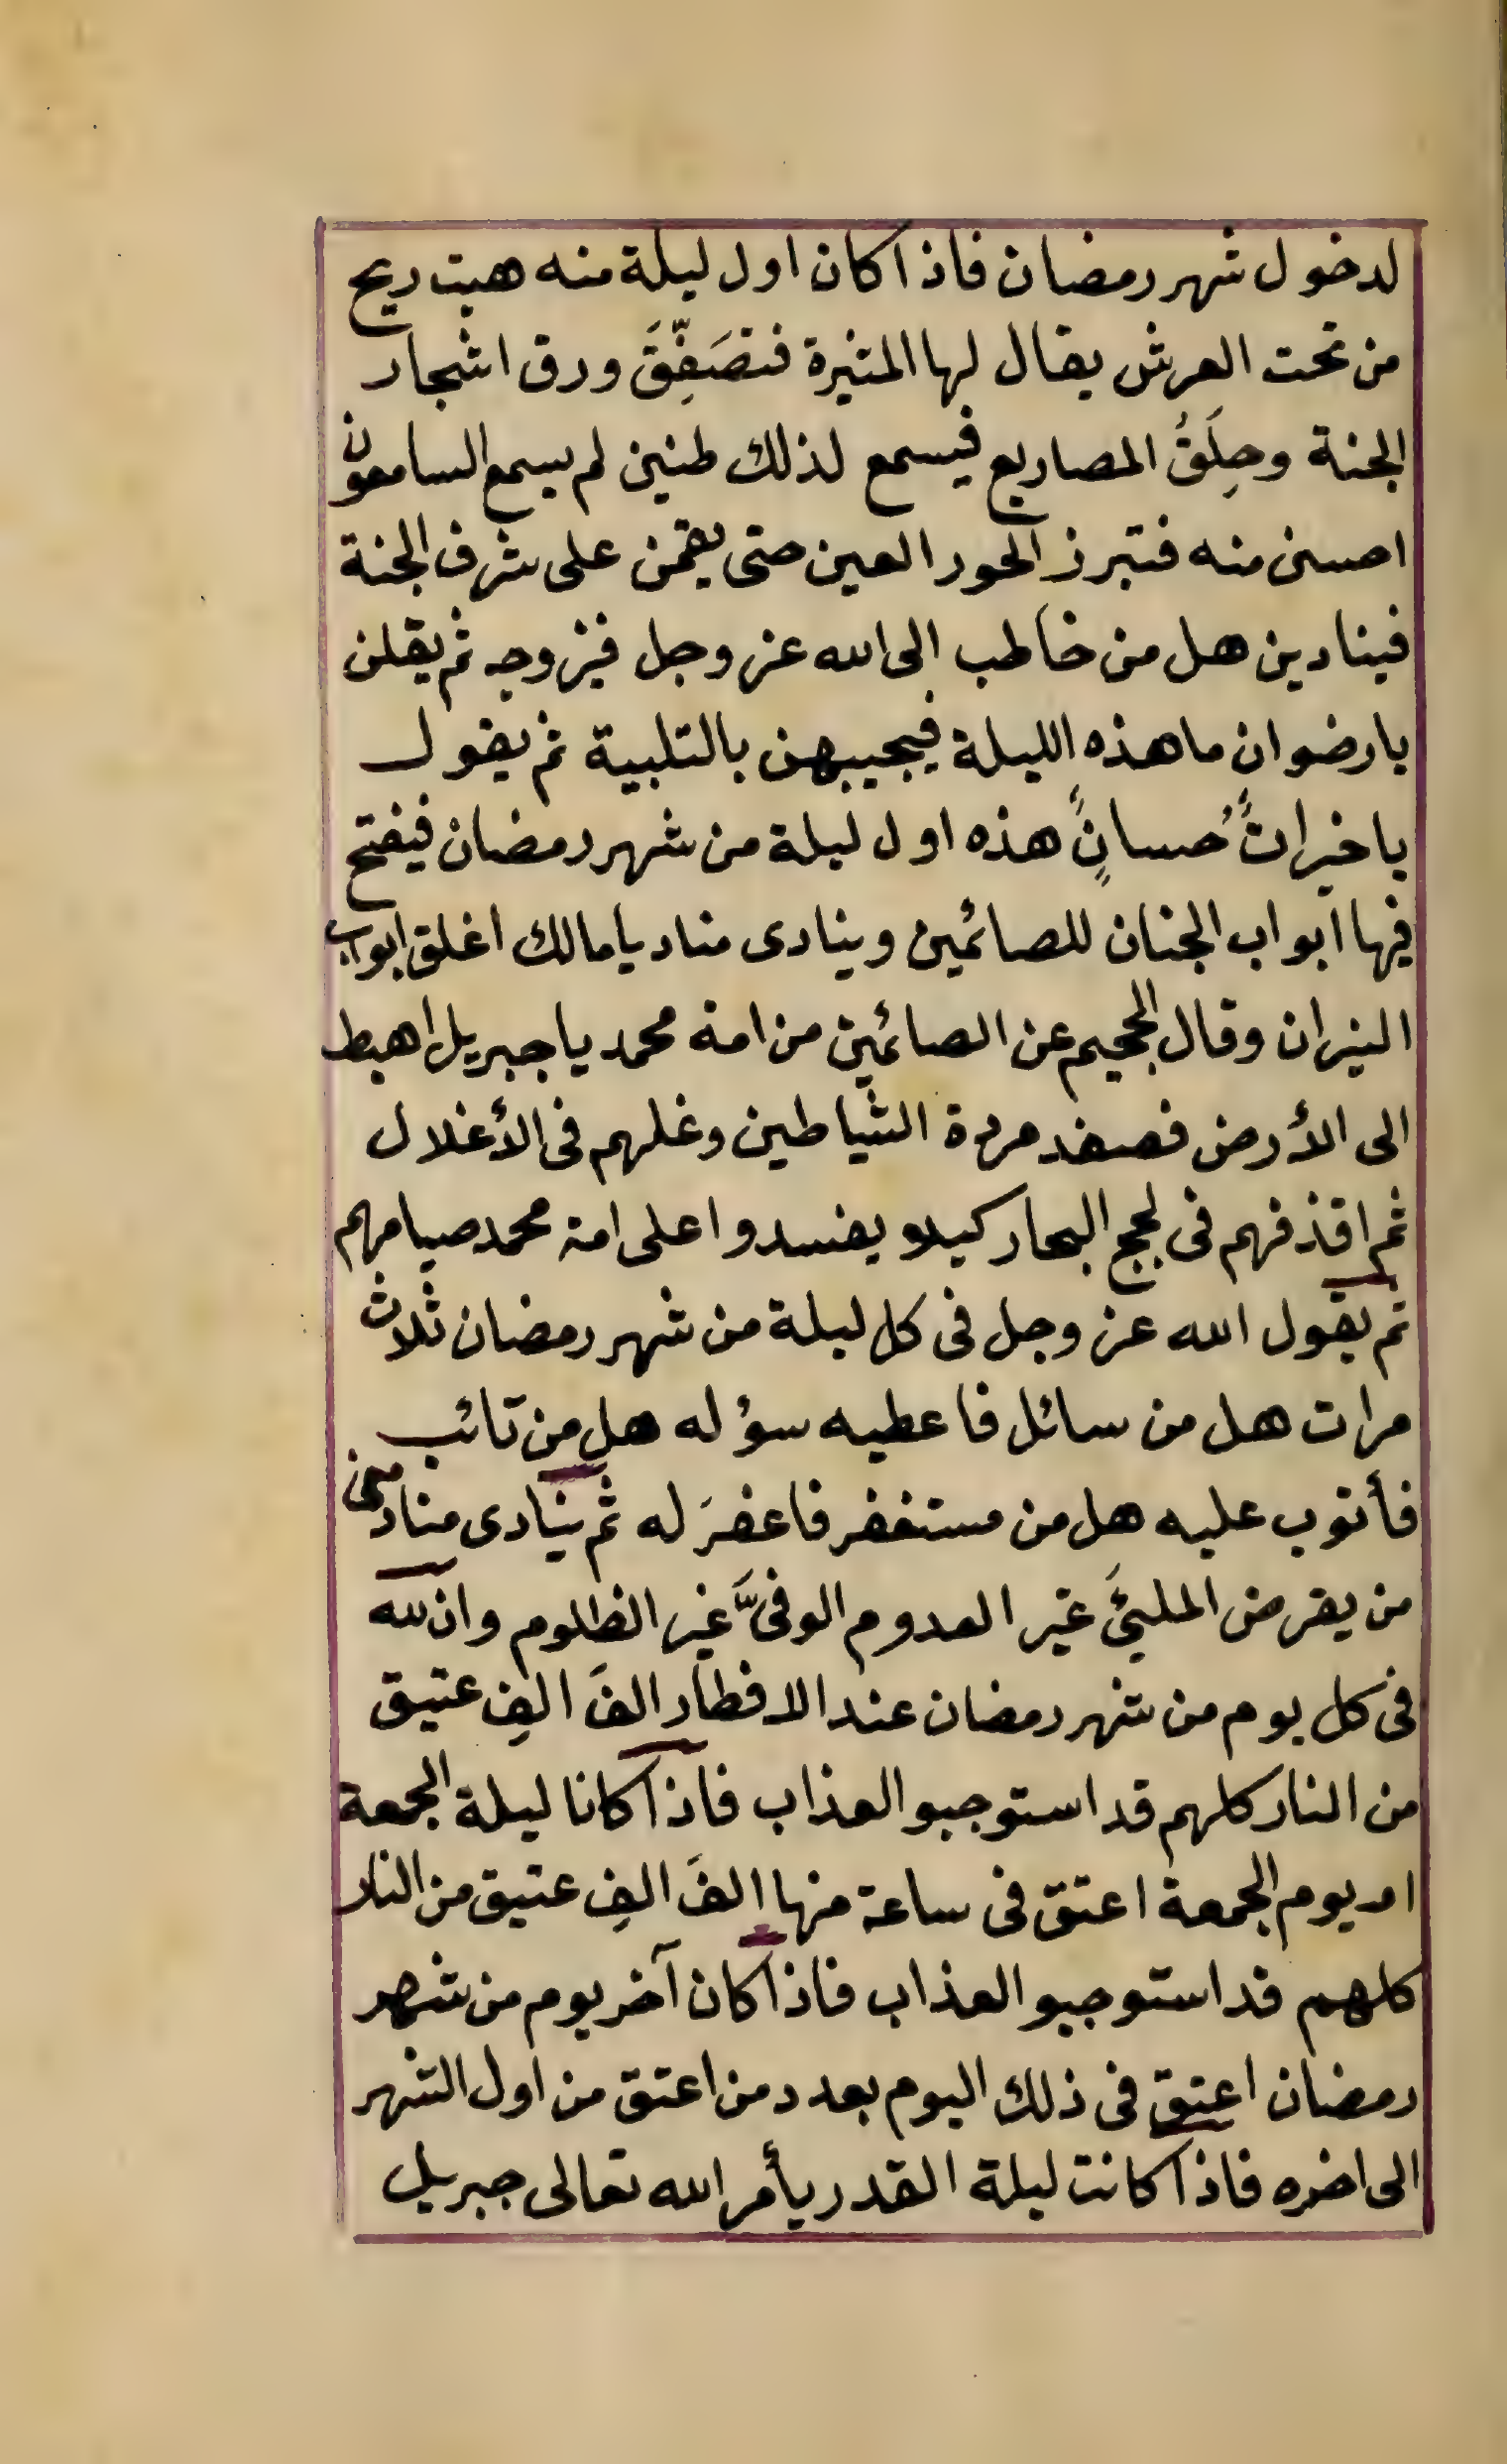 لدخول شهر رمضان فاذا كان اول ليلة منه هبت ريح
من تحت العرش يقال لها المثيرة فتصَفِّقَ ورق اشجار
الجنة وحِلَقُ المصاريع فيسمع لذلك طنين لم يسمع السامعون
احسن منه فتبرز الحور العين حتى يقمن على شرف الجنة
فينادين هل من خاطب الى الله عز وجل فيزوجه ثم يقلن
يا رضوان ما هذه الليلة فيجيبهن بالتلبية ثم يقول
يا خيراتٌ حسانٌ هذه اول ليلة من شهر رمضان فيفتح
فيها ابواب الجنان للصائمين وينادى مناد يا مالك اغلق ابواب
النيران وقال الجحيم عن الصائمين من امة محمد يا جبريل اهبط
الى الأرض فصفد مردة الشياطين وغلهم فى الأغلال
ثم اقذفهم فى لجج البحار كيلو يفسدوا على امة محمد صيامهم
ثم يقول الله عز وجل فى كل ليلة من شهر رمضان ثلاث
مرات هل من سائل فاعطيه سؤله هل من تائب
فأتوب عليه هل من مستغفر فاغفرَ له ثم ينادى مناد
من يقرض المليئَ غير العدوم الوفىَّ غير الظلوم وان لله
فى كل يوم من شهر رمضان عند الافطار الفَ الفِ عتيق
من النار كلهم قد استوجبو العذاب فاذا كانا ليلة الجمعة
او يوم الجمعة اعتق فى ساعة منها الفَ الفِ عتيق من النار
كلهم قد استوجبو العذاب فاذا كان آخر يوم من شهر
رمضان اعتق فى ذلك اليوم بعدد من اعتق من اول الشهر
الى اخره فاذا كانت ليلة القدر يأمر الله تعالى جبريل